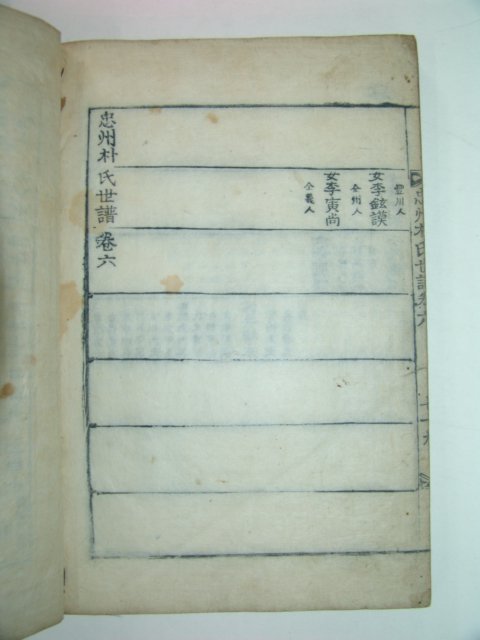 豊川人
女李鉉謨
全州人
女李寅尚
全義人
忠州朴氏世譜 卷六
忠州朴氏世譜 卷六